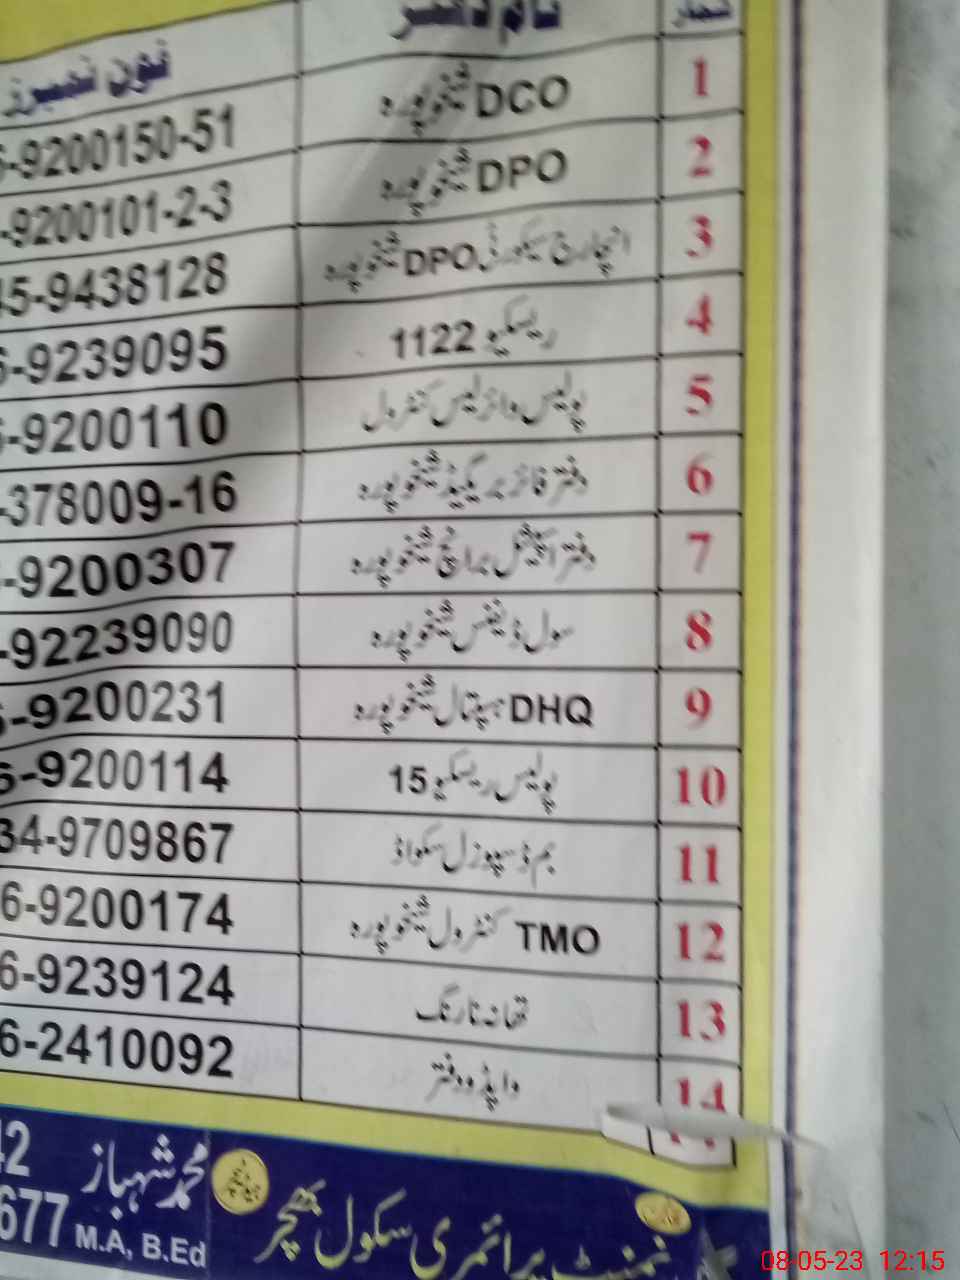 شمار نام دفتر فون نمبرز
1 DCO شیخوپورہ 6-9200150-51
2 DPO شیخوپورہ -9200101-2-3
3 انچارج سیکورٹی DPO شیخوپورہ 45-9438128
4 ریسکیو 1122 6-9239095
5 پولیس وائرلیس کنٹرول 6-9200110
6 دفتر فائر بریگیڈ شیخوپورہ -378009-16
7 دفتر اسپیشل برانچ شیخوپورہ -9200307
8 سول ڈیفنس شیخوپورہ -92239090
9 DHQ ہسپتال شیخوپورہ 6-9200231
10 پولیس ریسکیو 15 6-9200114
11 بم ڈسپوزل سکواڈ 34-9709867
12 TMO کنٹرول شیخوپورہ 6-9200174
13 تھانہ نارنگ 6-9239124
14 واپڈا دفتر 6-2410092
محمد شہباز 42
M.A, B.Ed 677
نمنٹ پرائمری سکول
08-05-23 12:15